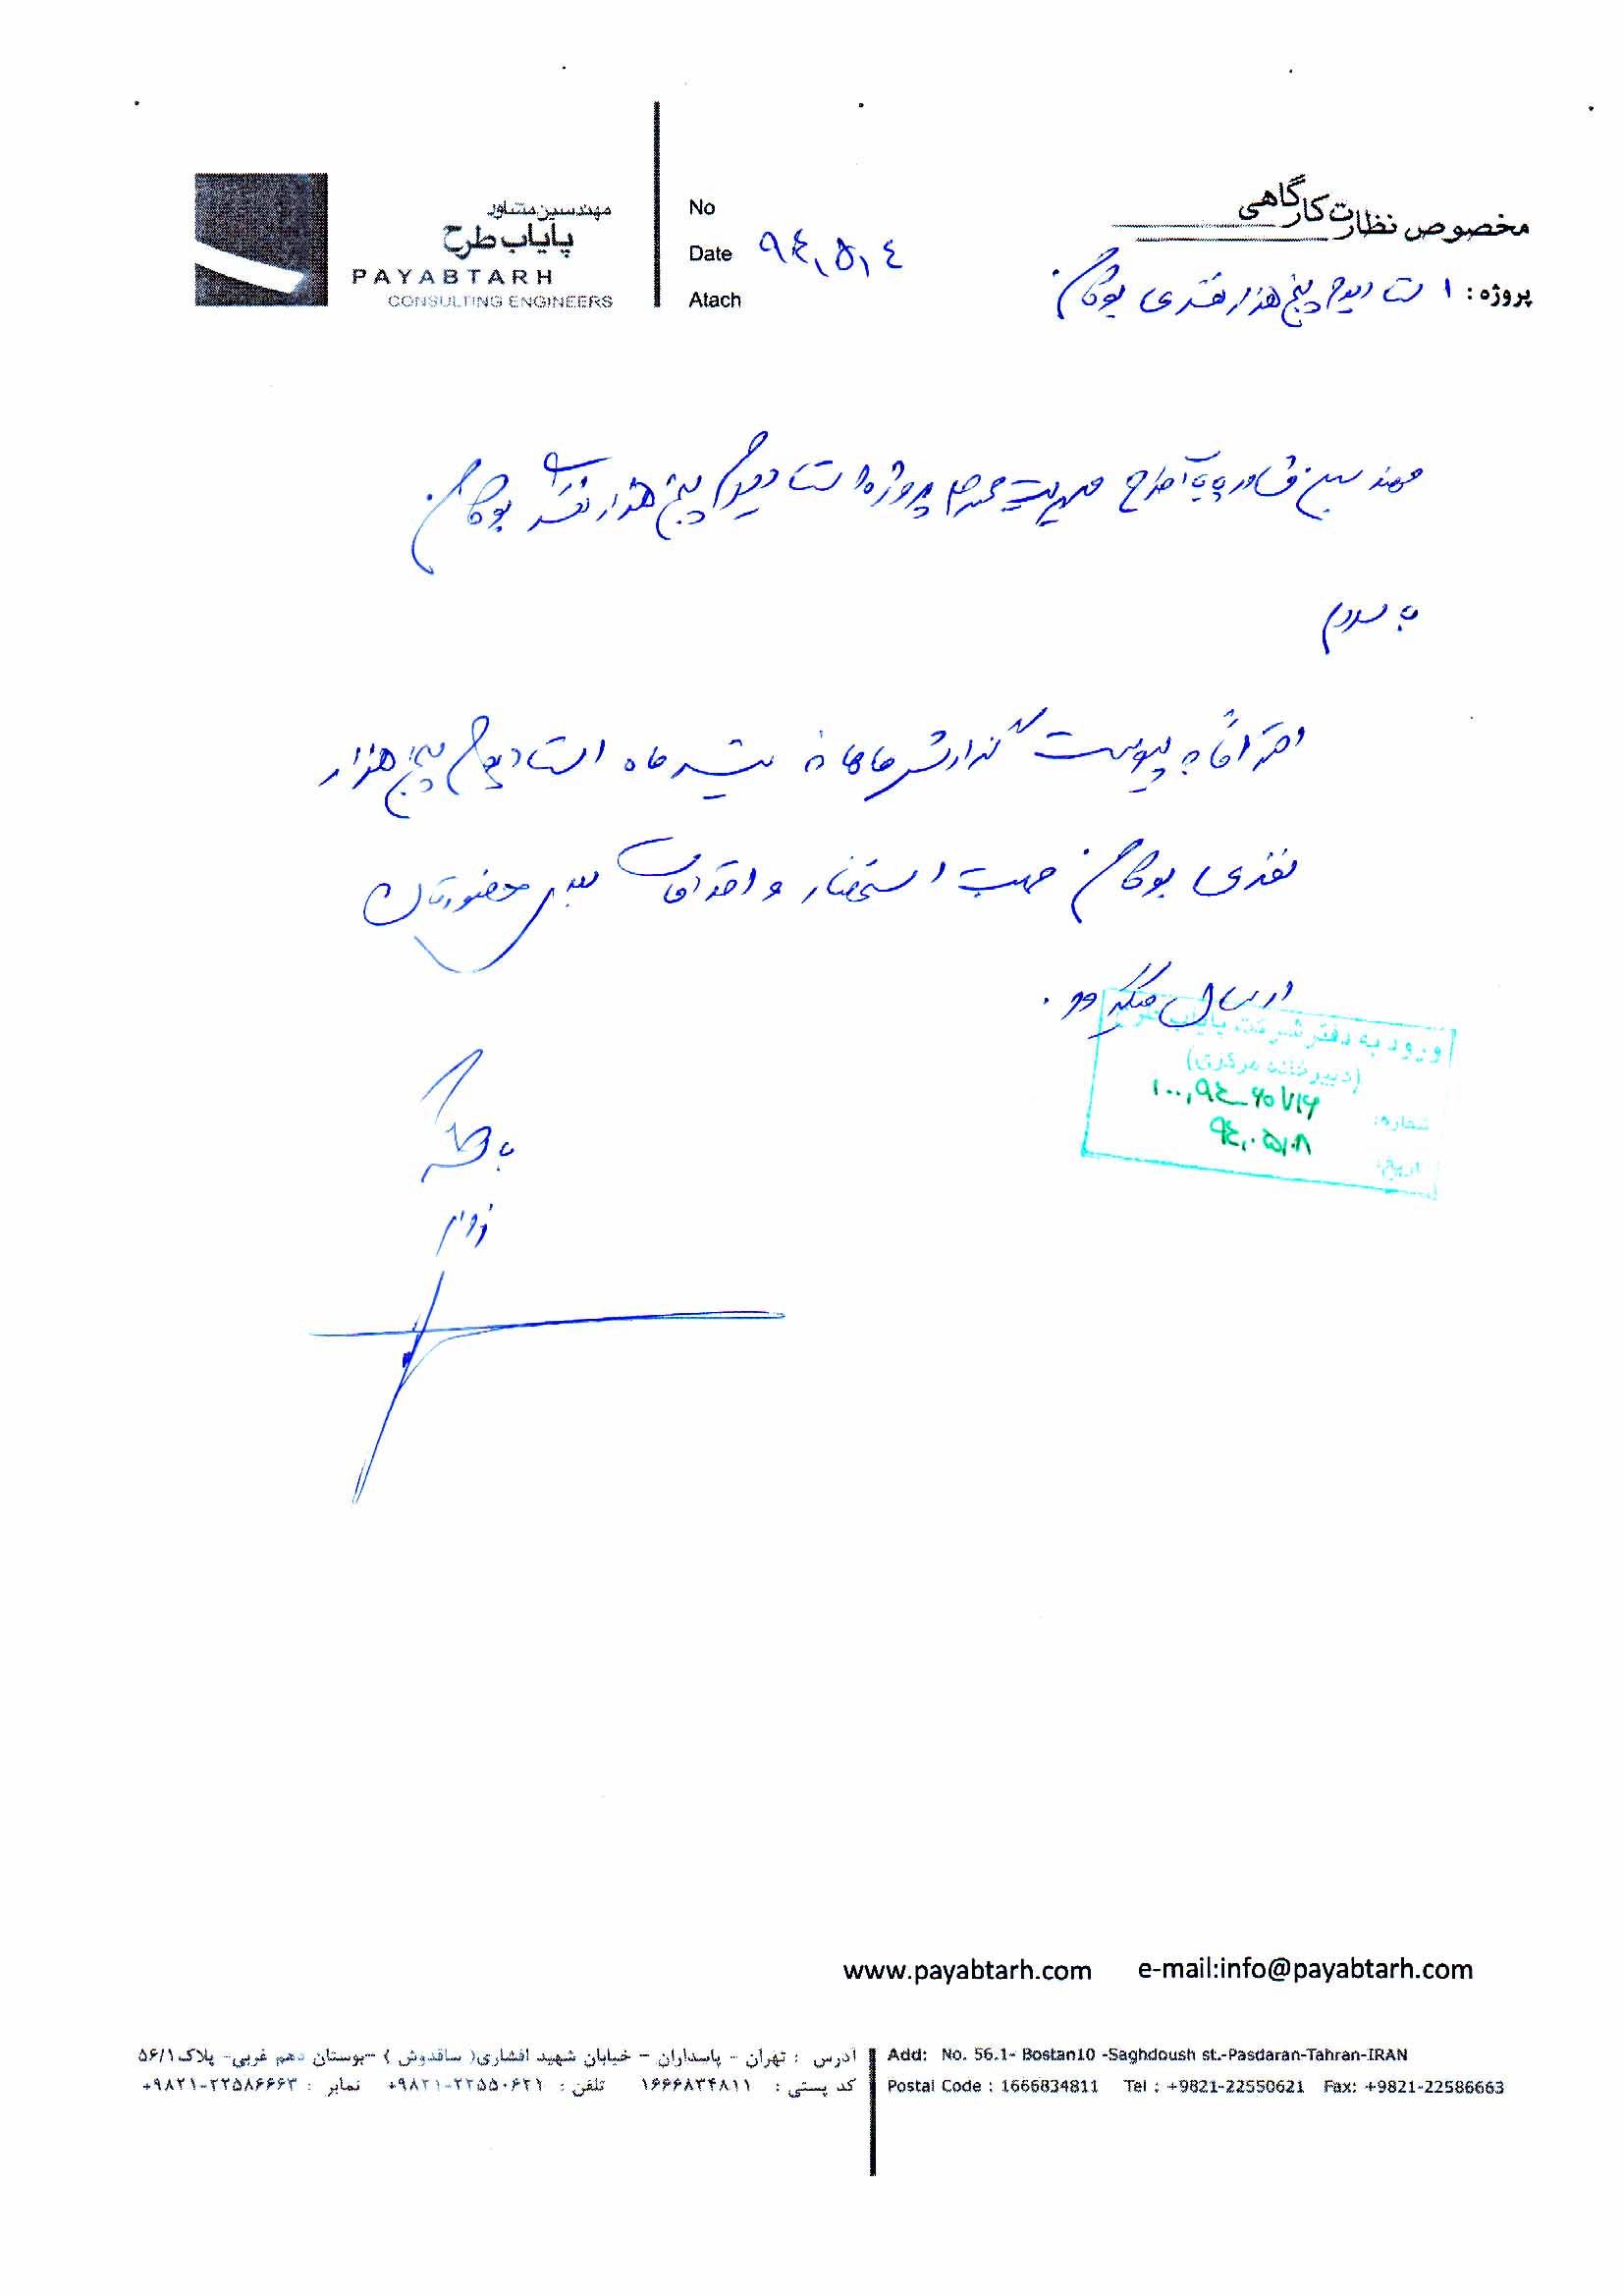 مهندسین مشاور
پایاب طرح
PAYABTARH
CONSULTING ENGINEERS
No
Date ۹٤,۵,٤
Atach
مخصوص نظارت کارگاهی
پروژه : استادیوم پنج هزار نفری بوکان
مهندسین مشاور پایاب طرح مدیریت محترم پروژه استادیوم پنج هزار نفری بوکان
با سلام
احتراماً به پیوست گزارش ماهانه تیر ماه استادیوم پنج هزار
نفری بوکان جهت استحضار و اقدامات بعدی حضورتان
ارسال میگردد .
با تشکر
ورود به دفتر شرکت پایاب طرح
(دبیرخانه مرکزی)
شماره: ۱۰۰,۹٤_۶۰۷۱۶
تاریخ: ۹٤,۰۵,۰۸
www.payabtarh.com e-mail:info@payabtarh.com
آدرس : تهران - پاسداران - خیابان شهید افشاری( ساقدوش ) -بوستان دهم غربی- پلاک ۵۶/۱
کد پستی : ۱۶۶۶۸۳۴۸۱۱ تلفن : ۲۲۵۵۰۶۲۱-۹۸۲۱+ نمابر : ۲۲۵۸۶۶۶۳-۹۸۲۱+
Add: No. 56.1- Bostan10 -Saghdoush st.-Pasdaran-Tahran-IRAN
Postal Code : 1666834811 Tel : +9821-22550621 Fax: +9821-22586663